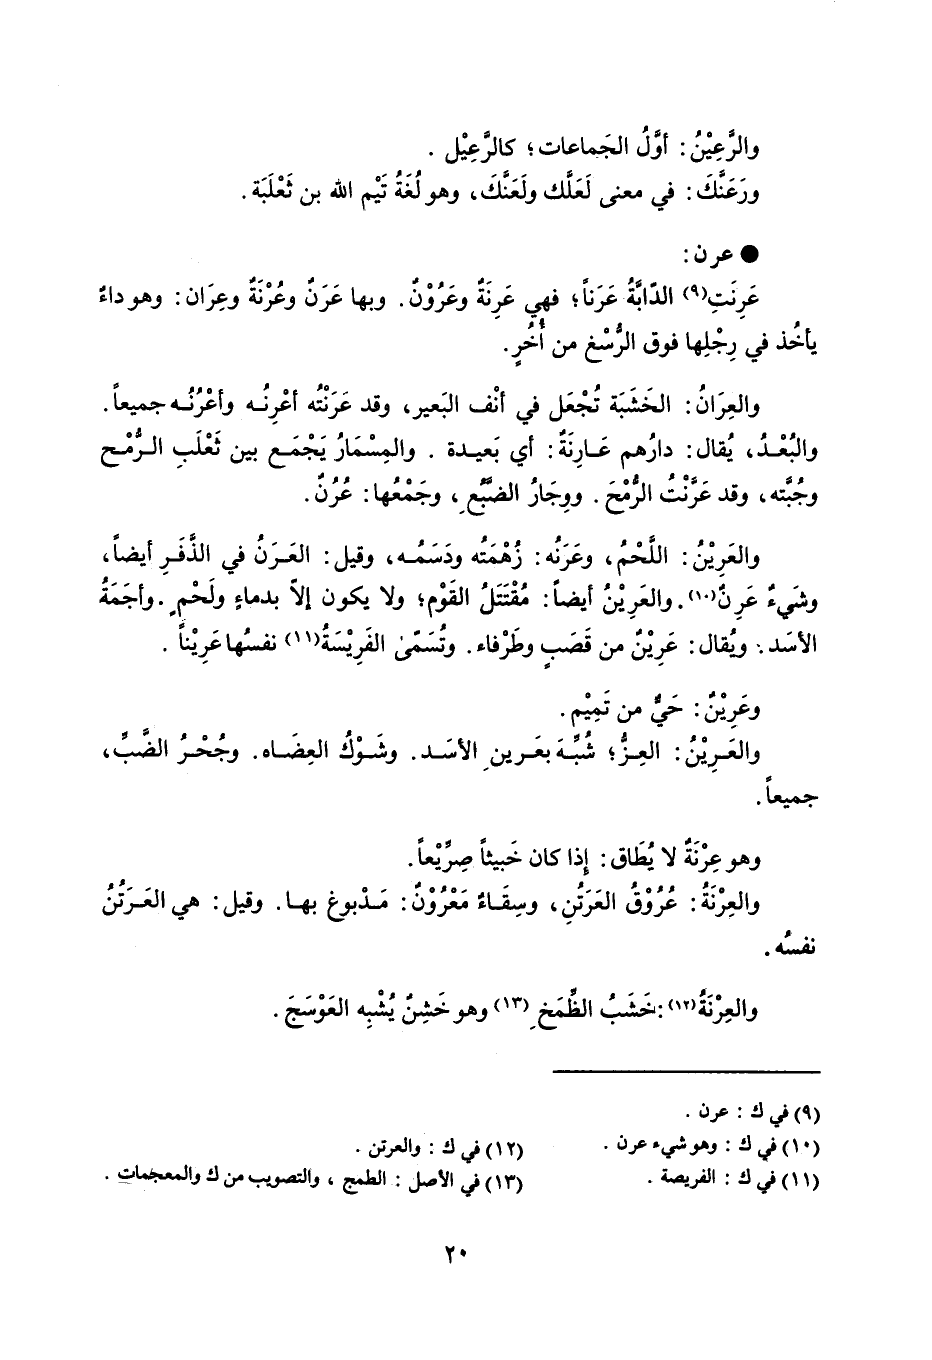 والرَّعِيْنُ: أوَّلُ الجَماعات؛ كالرَّعِيْل .
ورَعَنَّكَ: في معنى لَعَلَّك ولَعَنَّكَ، وهو لُغَةُ تَيْم الله بن ثَعْلَبَة.
● عرن:
عَرِنَتِ(٩) الدّابَّةُ عَرَناً؛ فهي عَرِنَةٌ وعَرُوْنٌ. وبها عَرَنٌ وعُرْنَةٌ وعِرَان: وهو داءٌ
يأخُذ في رِجْلِها فوق الرُّسْغ من أُخُرٍ.
والعِرَانُ: الخَشَبَة تُجْعَل في أنْف البَعير، وقد عَرَنْتُه أعْرِنُـه وأعْرُنُـه جميعاً.
والبُعْـدُ، يُقال: دارُهم عَـارِنَةٌ: أي بَعيـدة . والمِسْمَارُ يَجْمَـع بين ثَعْلَبِ الـرُّمْـح
وجُبَّته، وقد عَرَّنْتُ الرُّمْحَ. ووِجَارُ الضَّبُعِ، وجَمْعُها: عُرُنٌ.
والعَرِيْنُ: اللَّحْمُ، وعَرَنُه: زُهْمَتُه ودَسَمُـه، وقيل: العَـرَنُ في الذَّفَـرِ أيضـاً،
وشَيءٌ عَرِنٌ(١٠). والعَرِيْنُ أيضاً: مُقْتَتَلُ القَوْم؛ ولا يكون إلاّ بدماءٍ ولَحْمٍ. وأجَمَةُ
الأسَد. ويُقال: عَرِيْنٌ من قَصَبٍ وطَرْفاء. وتُسَمّىٰ الفَرِيْسَةُ(١١) نفسُها عَرِيْناً .
وعَرِيْنٌ: حَيٌّ من تَمِيْم.
والعَـرِيْنُ: العِـزُّ؛ شُبِّـهَ بعَـرينِ الأسَـد. وشَـوْكُ العِضَـاه. وجُحْـرُ الضَّبِّ،
جميعاً.
وهو عِرْنَةٌ لا يُطَاق: إذا كان خَبيثاً صِرِّيْعاً.
والعِرْنَةُ: عُرُوْقُ العَرَتُنِ، وسِقَـاءٌ مَعْرُوْنٌ: مَـدْبوغ بهـا. وقيل: هي العَـرَتُنُ
نفسُه.
والعِرْنَةُ(١٢): خَشَبُ الظِّمَخِ(١٣) وهو خَشِنٌ يُشْبِه العَوْسَجَ.
(٩) في ك : عرن .
(١٠) في ك : وهو شيء عرن .
(١١) في ك : الفريصة .
(١٢) في ك : والعرتن .
(١٣) في الأصل : الطمج ، والتصويب من ك والمعجمات .
٢٠